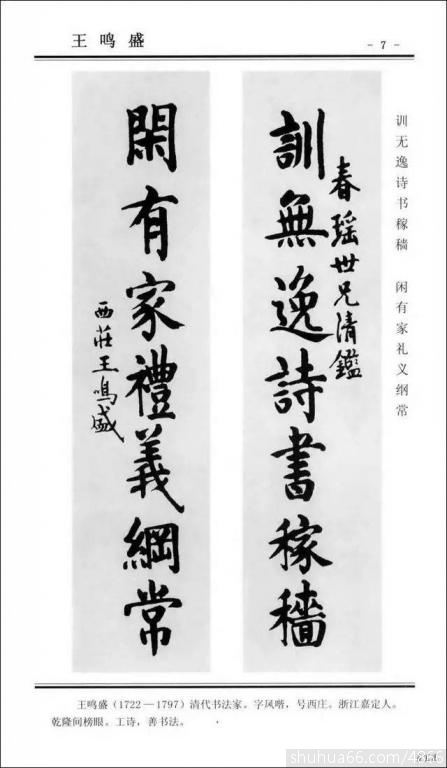 王鸣盛
- 7 -
训无逸诗书稼穑 闲有家礼义纲常
春瑶世兄清鑑
訓無逸詩書稼穡
閑有家禮義綱常
西莊王鳴盛
王鸣盛（1722—1797）清代书法家。字凤喈，号西庄。浙江嘉定人。
乾隆间榜眼。工诗，善书法。
shuhua66.com